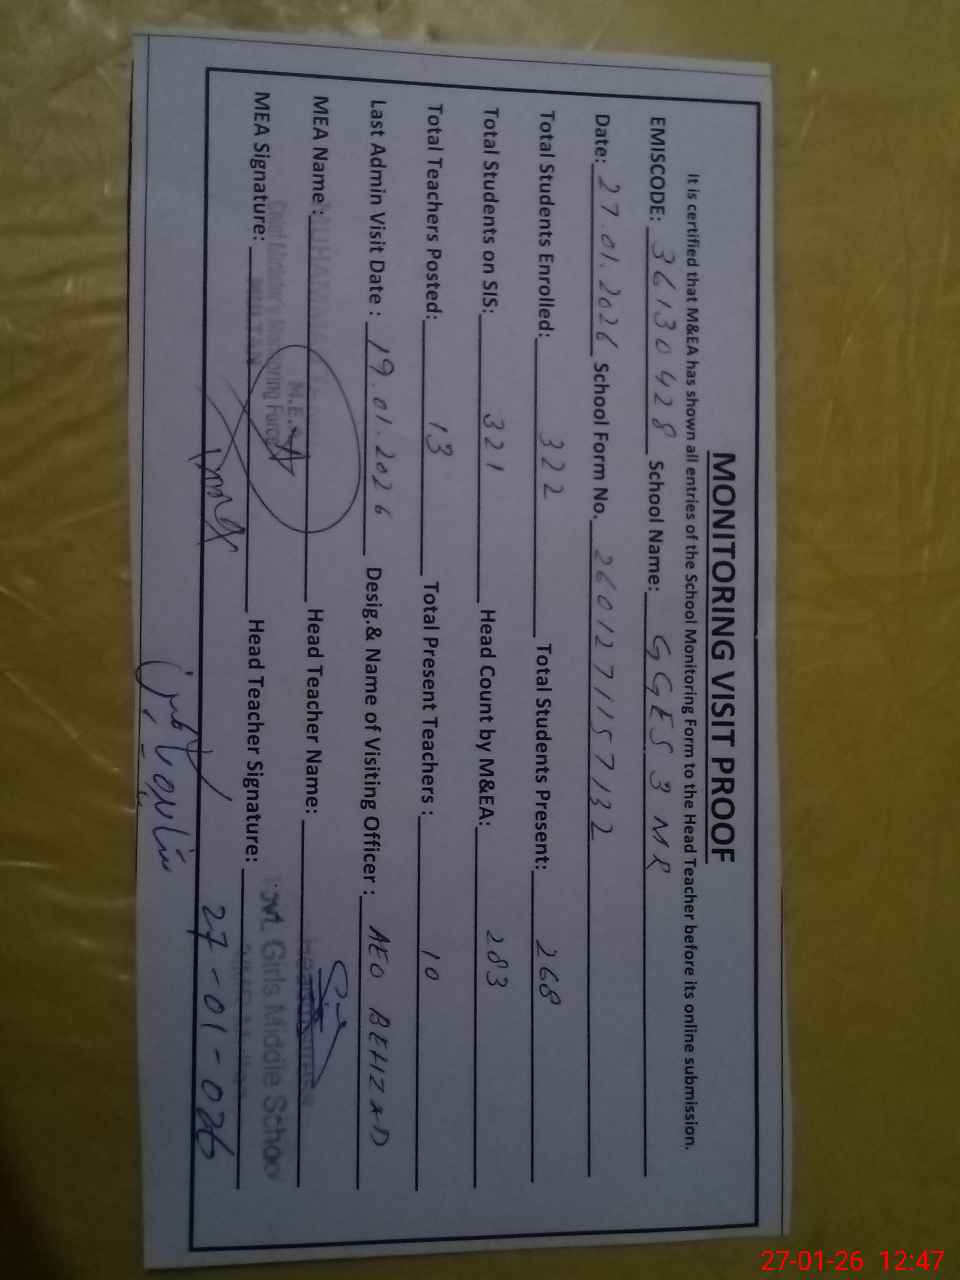 MONITORING VISIT PROOF
It is certified that M&EA has shown all entries of the School Monitoring Form to the Head Teacher before its online submission.
EMISCODE: 36130428 School Name: GGES 3 MR
Date: 27.01.2026 School Form No. 2601271157132
Total Students Enrolled: 322 Total Students Present: 268
Total Students on SIS: 321 Head Count by M&EA: 283
Total Teachers Posted: 13 Total Present Teachers : 10
Last Admin Visit Date : 19.01.2026 Desig.& Name of Visiting Officer : AEO BEHZAD
MEA Name : MUHAMMAD Head Teacher Name:
M.E.A
Chief Minister's Monitoring Force
MEA Signature: MULTAN Head Teacher Signature: Govt. Girls Middle School
27-01-026
27-01-26 12:47